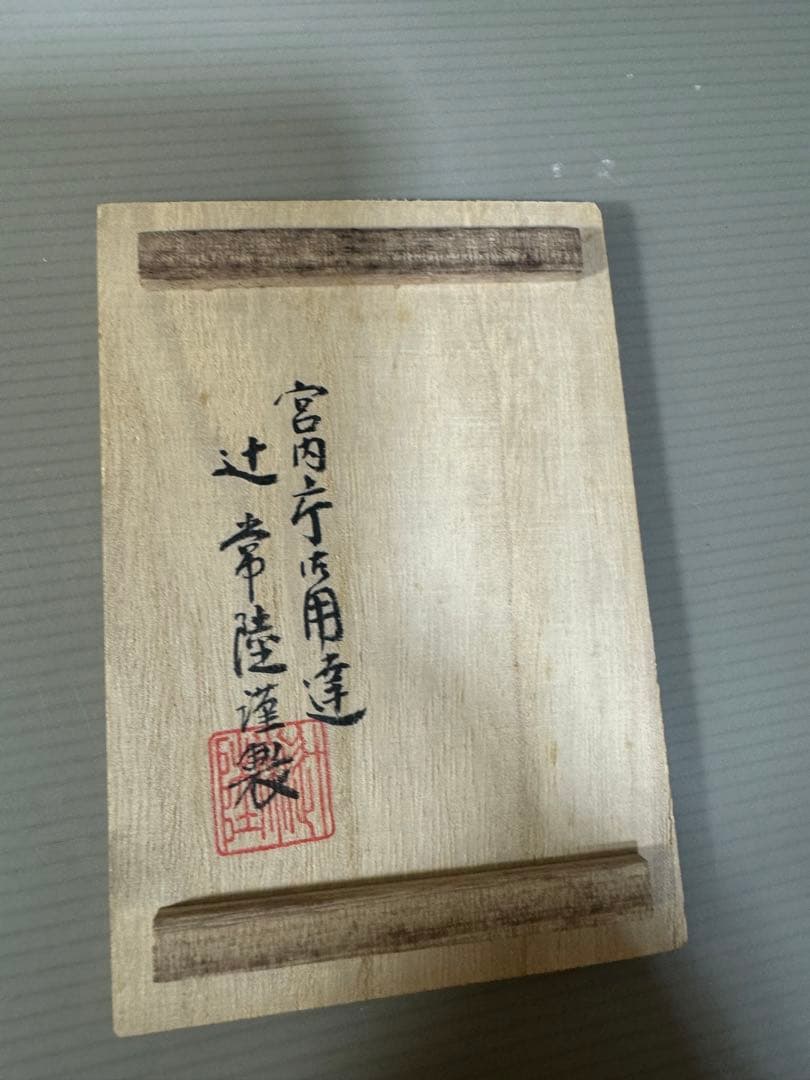 宮内庁御用達
辻 常陸謹製